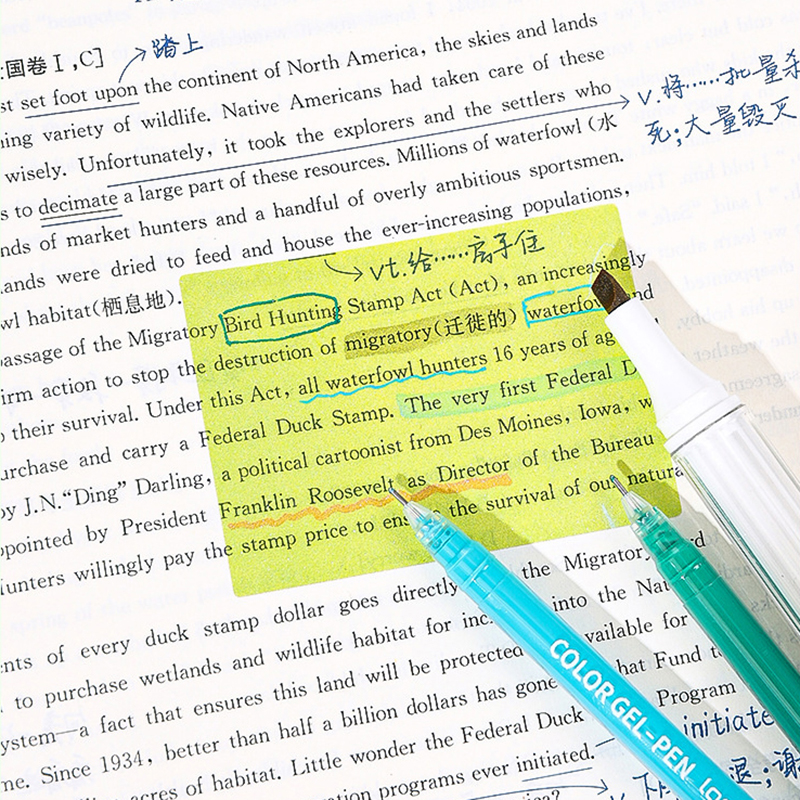 国卷 I ,C]
踏上
st set foot upon the continent of North America, the skies and lands
ing variety of wildlife. Native Americans had taken care of these
wisely. Unfortunately, it took the explorers and the settlers who
v.将……批量杀
死;大量毁灭
s to decimate a large part of these resources. Millions of waterfowl (水
nds of market hunters and a handful of overly ambitious sportsmen.
ands were dried to feed and house the ever-increasing populations,
wl habitat(栖息地).
vt.给……房子住
assage of the Migratory Bird Hunting Stamp Act (Act), an increasingly
irm action to stop the destruction of migratory(迁徙的) waterfow nd
their survival. Under this Act, all waterfowl hunters 16 years of ag
urchase and carry a Federal Duck Stamp. The very first Federal D
by J.N."Ding" Darling, a political cartoonist from Des Moines, Iowa, w
pointed by President Franklin Roosevelt as Director of the Bureau
unters willingly pay the stamp price to ens the survival of our natura
nts of every duck stamp dollar goes directly the Migratory rd
to purchase wetlands and wildlife habitat for inc into the Nat
ystem—a fact that ensures this land will be protected vailable for
me. Since 1934, better than half a billion dollars has gone hat Fund to
acres of habitat. Little wonder the Federal Duck Program
ation programs ever initiated.
initiate
退;谢
COLOR GEL-PEN